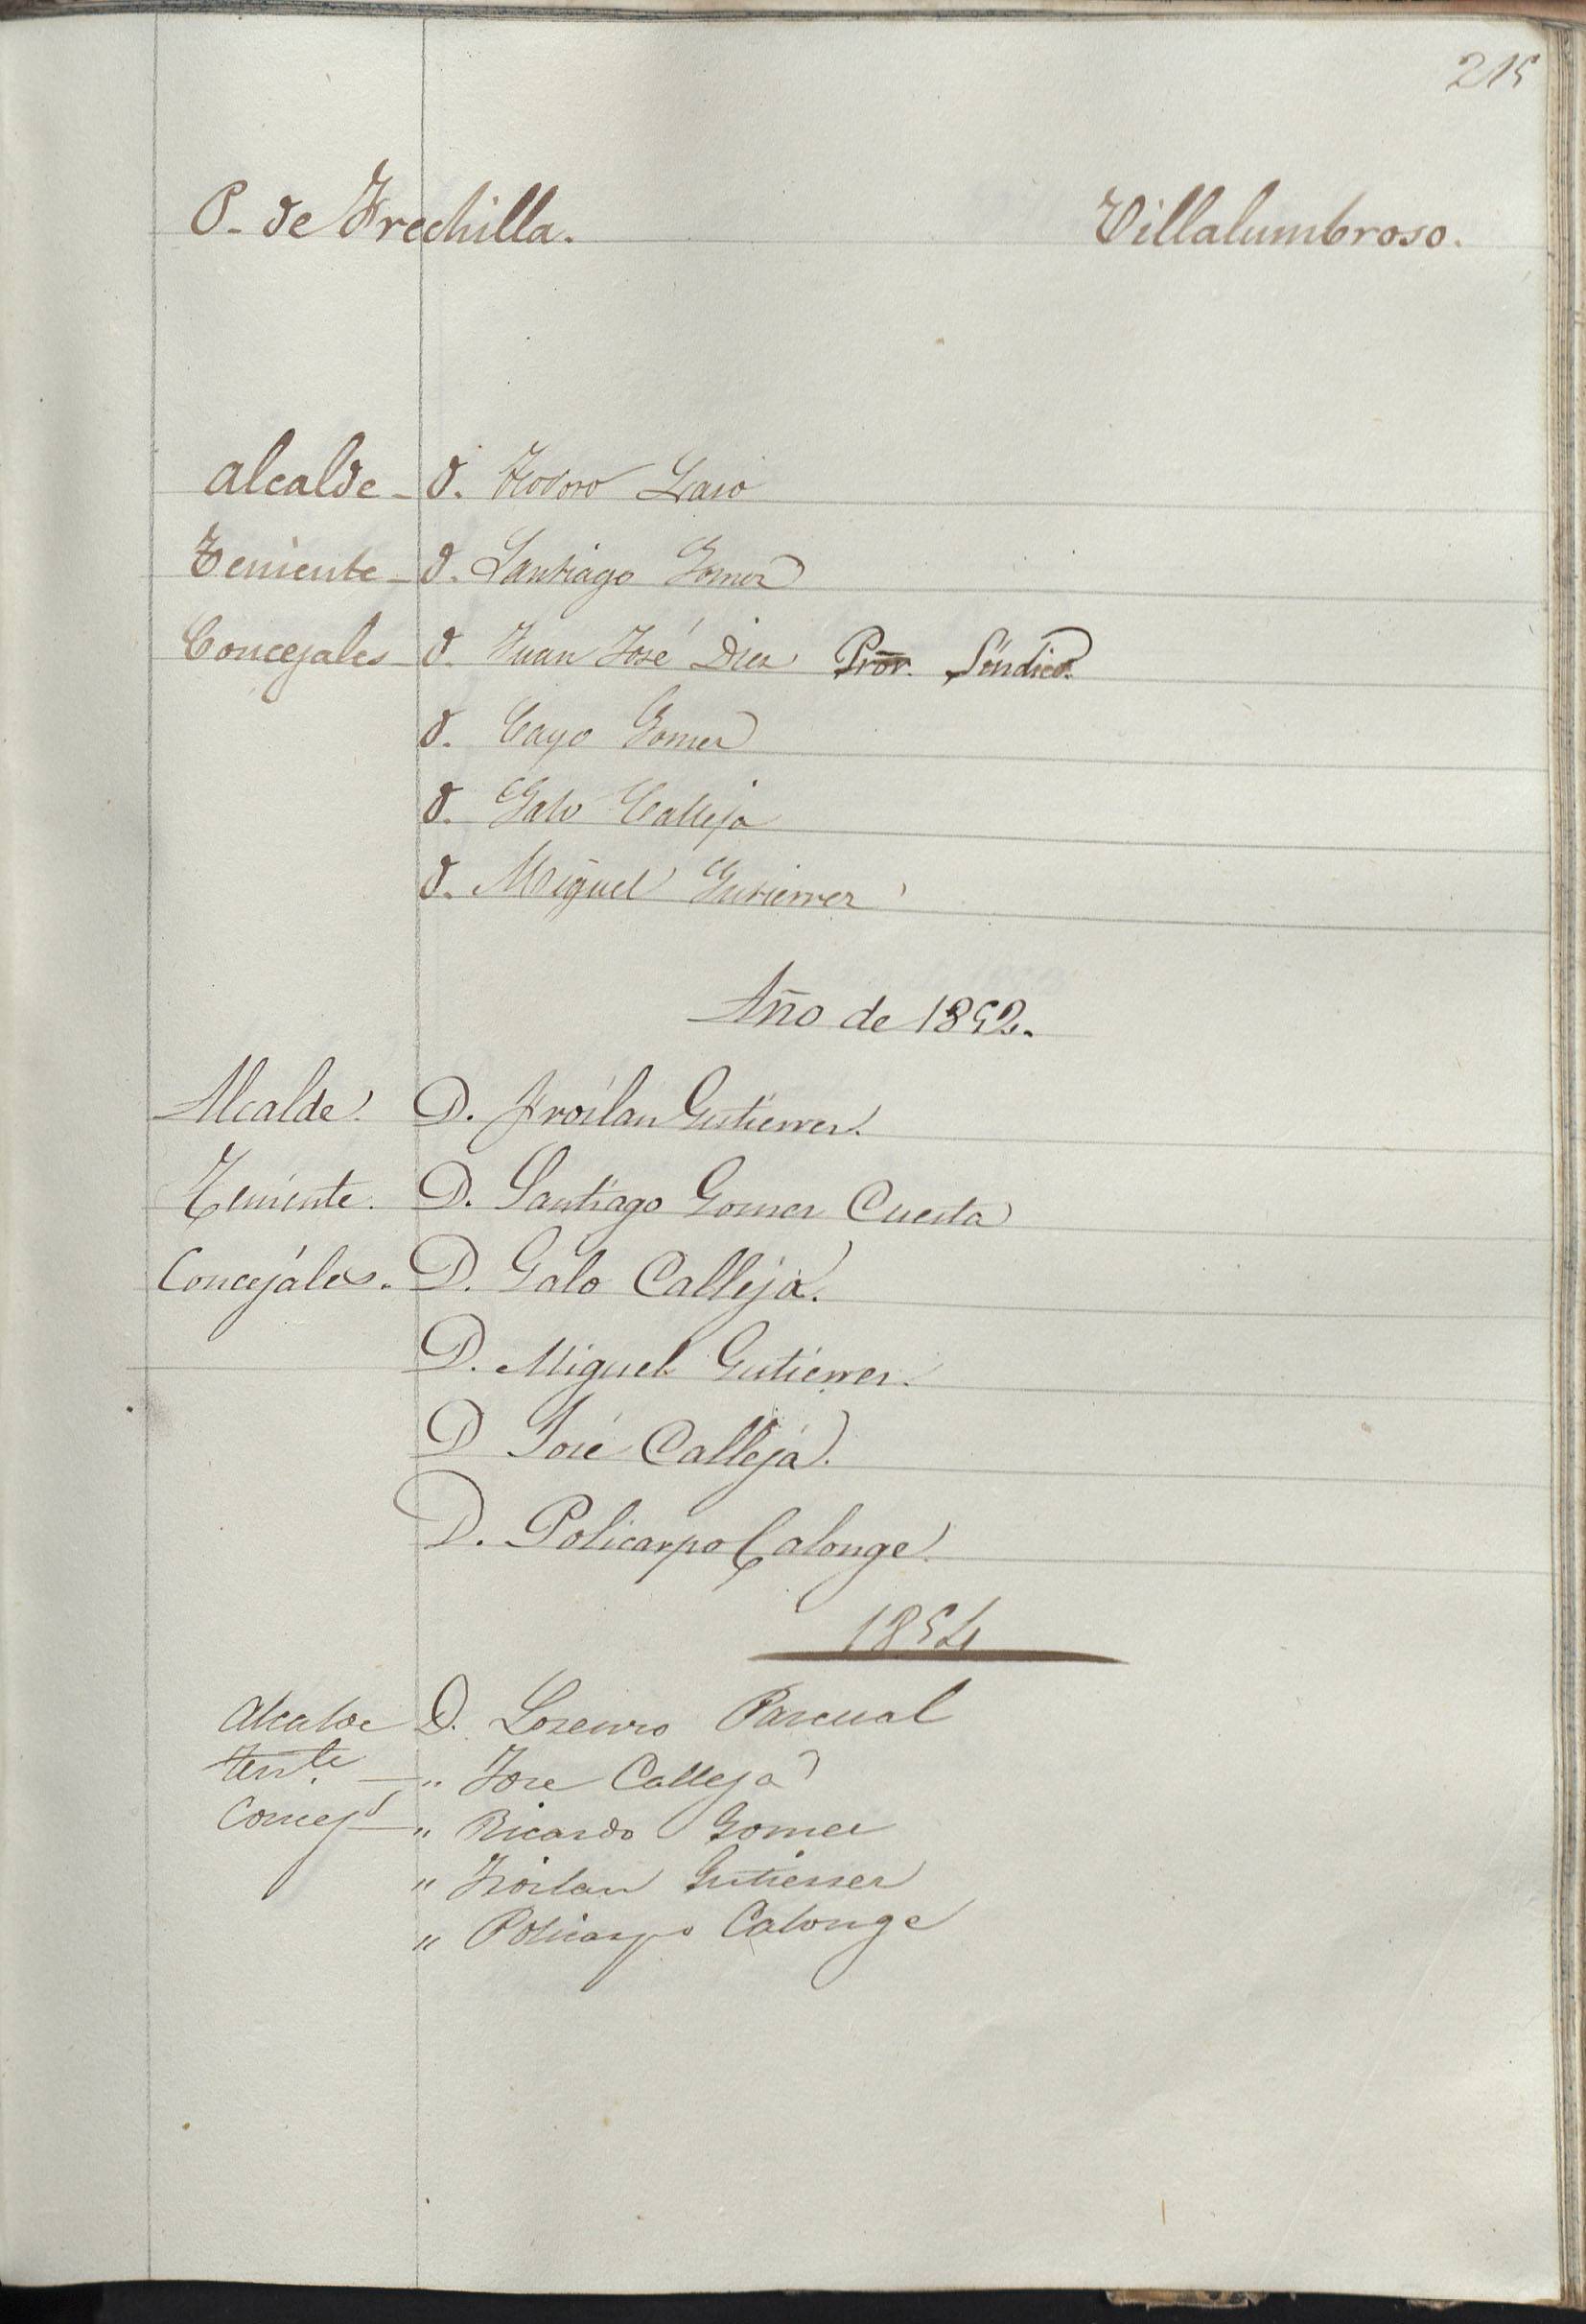 215
P. de Frechilla. Villalumbroso.
Alcalde - D. Teodoro Laso
Teniente - D. Santiago Gomez
Concejales - D. Juan José Diez Pror. Síndico.
D. Cayo Gomez
D. Galo Calleja
D. Miguel Gutierrez
Año de 1852.
Alcalde. D. Froilan Gutierrez.
Teniente. D. Santiago Gomez Cuesta
Concejáles. D. Galo Calleja.
D. Miguel Gutierrez.
D José Calleja.
D. Policarpo Calonge.
1854
Alcalde D. Lorenzo Pascual
Tente. — " Jose Calleja
Concejs — " Ricardo Gomez
" Froilan Gutierrez
" Policarpo Calonge